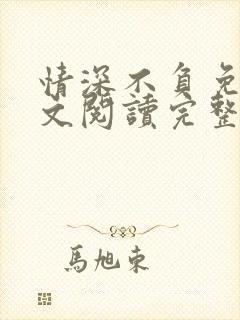 情深不負免
文閱讀完整
馬旭東